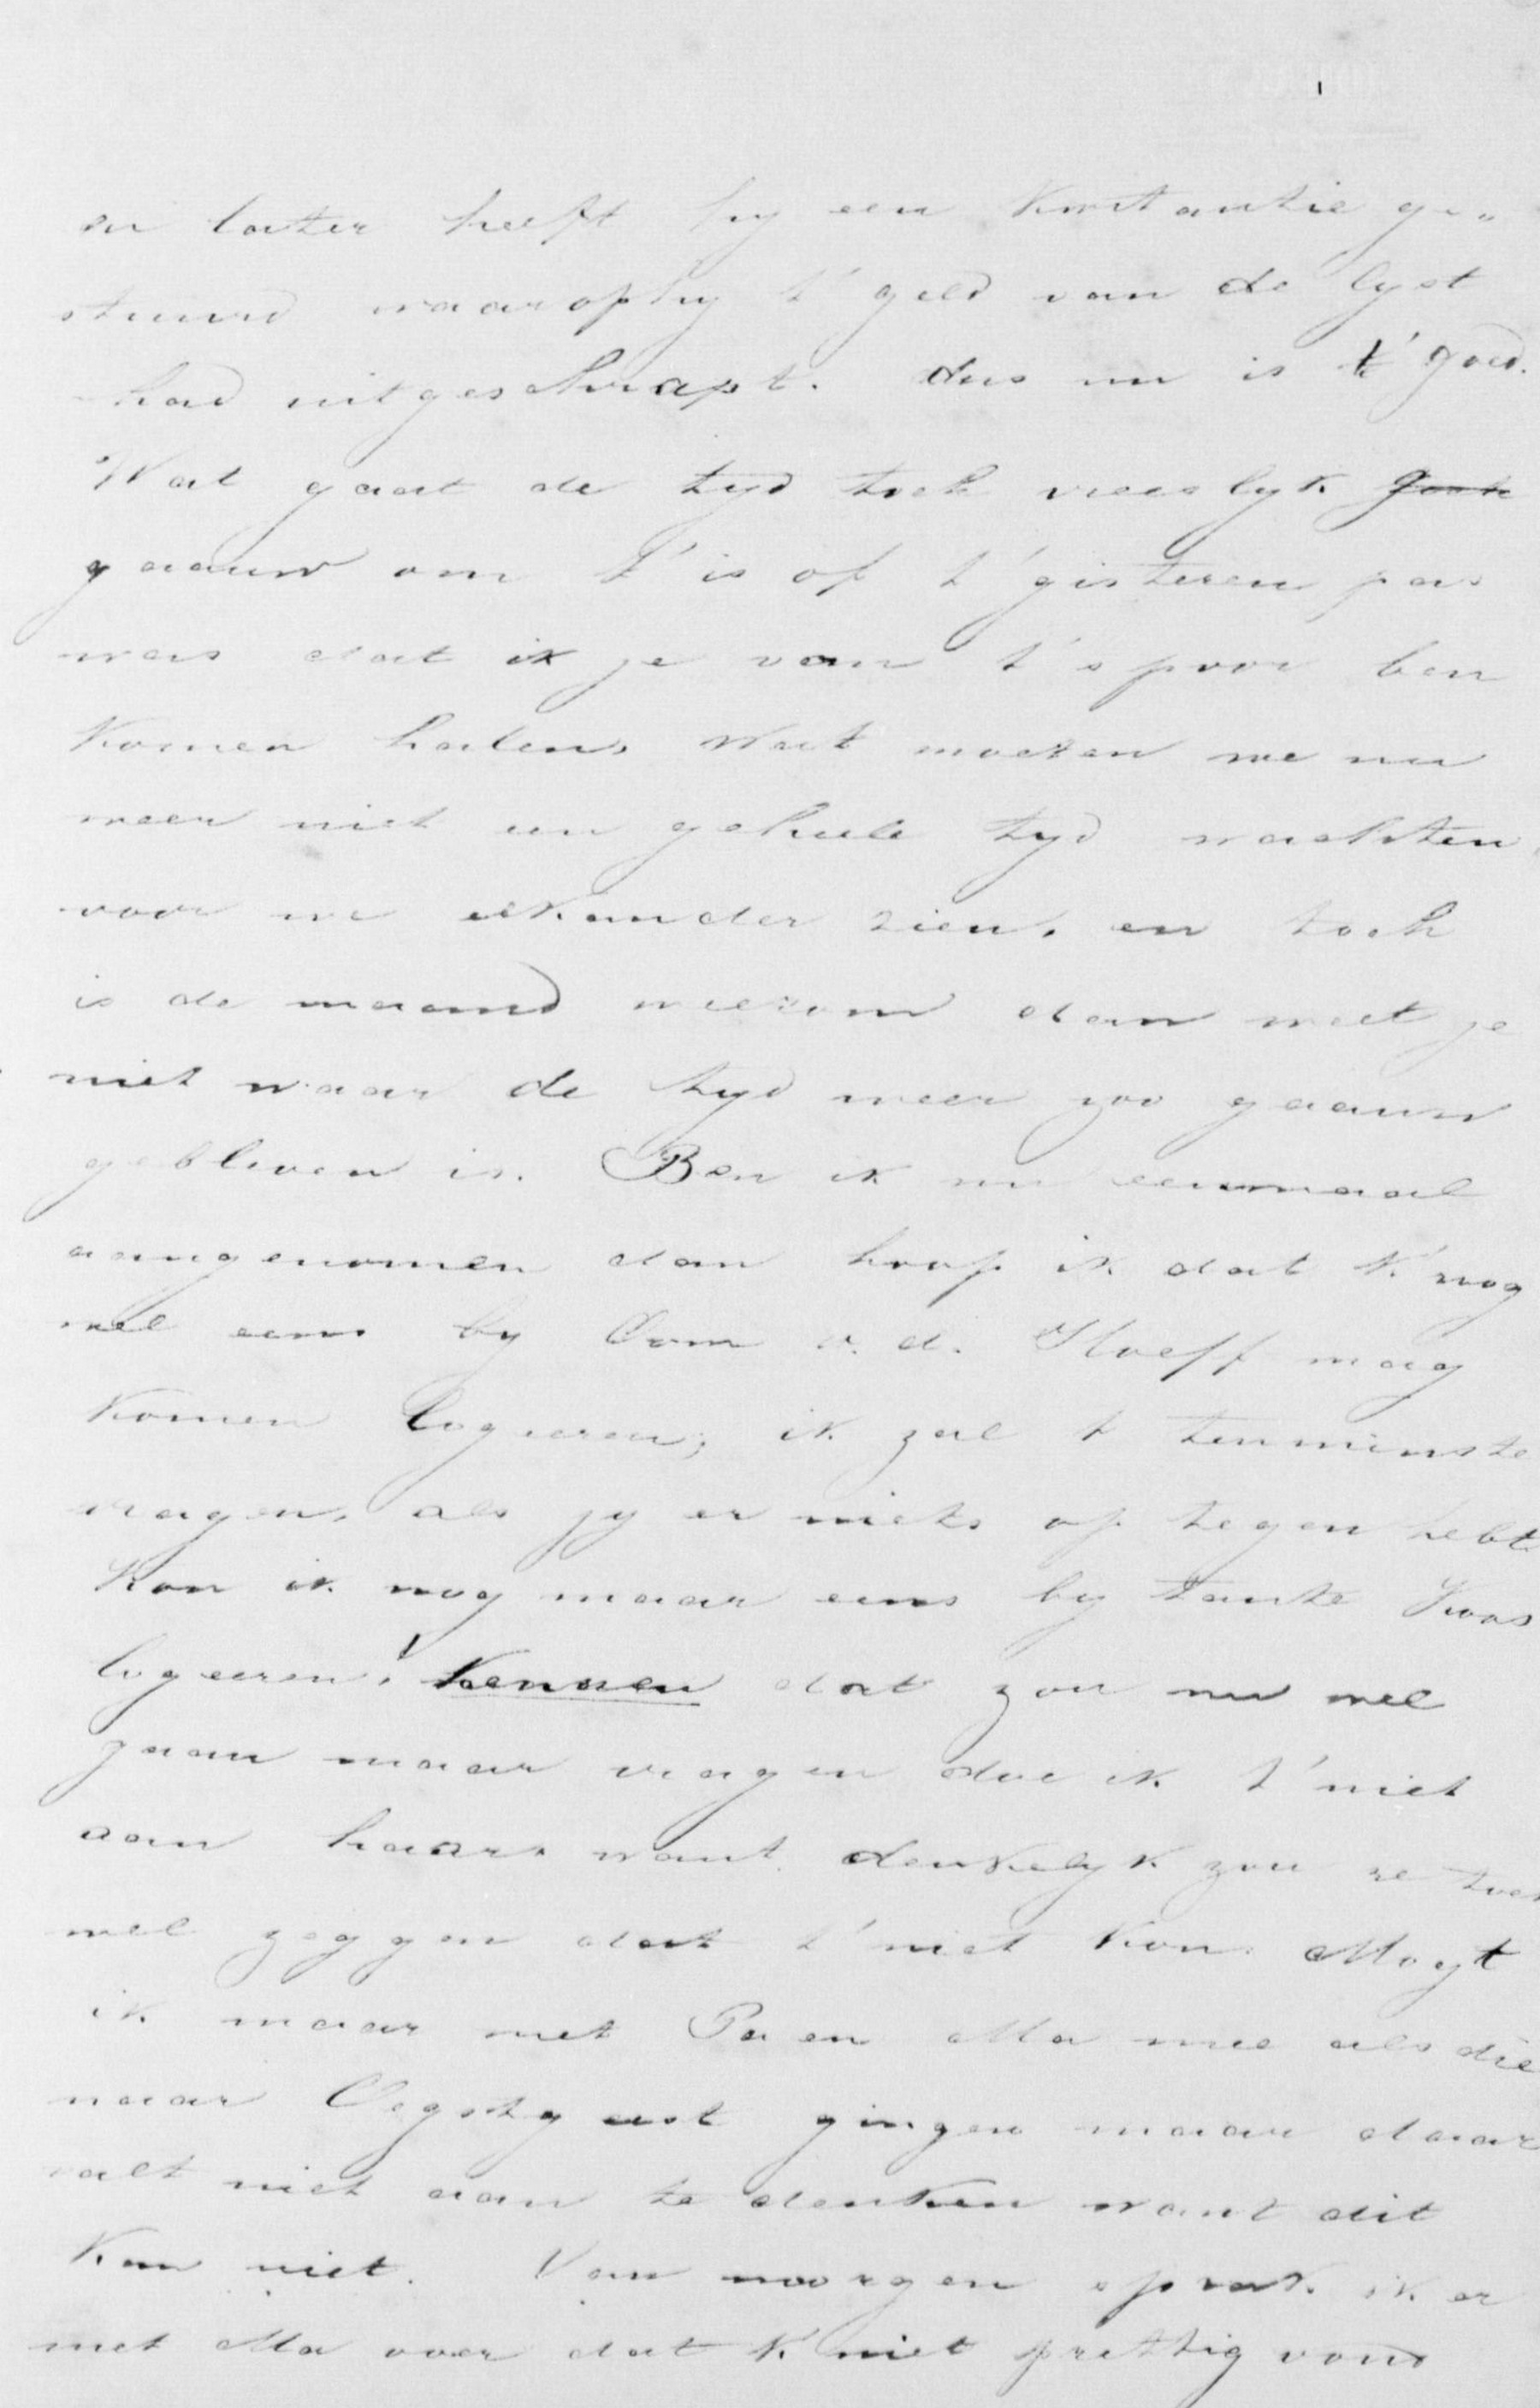 en later heeft hy een kwitantie ge„
stuurd waarop hy t' geld van de lyst
had uitgeschrapt. dus nu is t' goed.
Wat gaat de tyd toch vreeslyk gaak
gaauw om t' is of t' gisteren pas
was dat ik je van t' spoor ben
komen halen, Wat moeten we nu
weer niet een geheele tyd wachten,
voor we elkander zien, en toch
is de maand weerom dan weet je
niet waar de tyd weer zoo gaauw
gebleven is. Ben ik nu eenmaal
aangenomen dan hoop ik dat k' nog
wel eens by Oom v. d. Hoeff mag
komen logeeren; ik zal t tenminste
vragen, als jy er niets op tegen hebt
Kon ik nog maar eens by tante Koos
logeeren, kennen dat zou nu wel
gaan maar vragen doe ik t' niet
aan haar, want denkelyk zou ze toch
wel zeggen dat t' niet kon. Mogt
ik maar met Pa en Ma mee als die
naar Oegstgeest gingen maar daar
valt niet aan te denken want dit
kan niet. Van morgen sprak ik er
met Ma over dat k' niet prettig vond